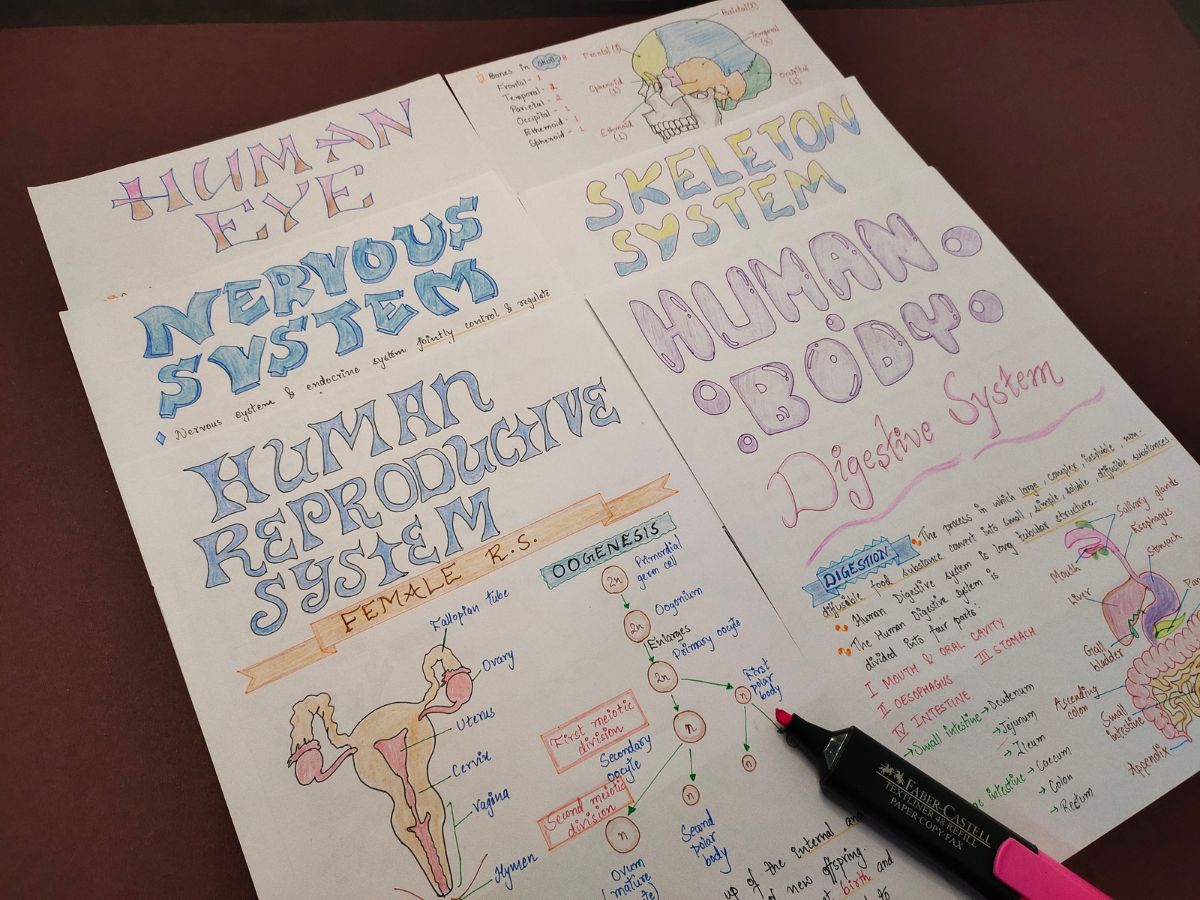 HUMAN
EYE
Bones in Skull 8
Frontal - 1
Temporal - 2
Parietal - 2
Occipital - 1
Ethemoid - 1
Sphenoid - 1
Parietal(2)
Frontal(1)
Temporal
(2)
Sphenoid
(1)
Occipital
(1)
Ethmoid
(1)
SKELETON
SYSTEM
NERVOUS
SYSTEM
Nervous system & endocrine system jointly control & regulate
HUMAN
REPRODUCTIVE
SYSTEM
FEMALE R.S.
Fallopian tube
Ovary
Uterus
Cervix
Vagina
Hymen
OOGENESIS
2n
Primordial
germ cell
2n
Oogonium
Enlarges
Primary oocyte
2n
n
First
polar
body
First meiotic
division
n
Secondary
oocyte
n
Second meiotic
division
n
n
Second
polar
body
Ovum
(mature
up of the internal and
of new offspring.
birth and
to
HUMAN
BODY
Digestive System
DIGESTION
The process in which large, complex, insoluble, non-
diffusible food substance convert into small, simple, soluble, diffusible substances.
Human Digestive system is long tubular structure.
The Human Digestive system is
divided into four parts:
I MOUTH & ORAL CAVITY
II OESOPHAGUS
III STOMACH
IV INTESTINE
Small intestine → Deudenum
→ Jejunum
→ Ileum
intestine → Caecum
→ Colon
→ Rectum
Salivary glands
Esophagus
Mouth
Stomach
Liver
Gall
bladder
Ascending
colon
Small
intestine
Appendix
FABER-CASTELL
TEXTLINER 48 REFILL
PAPER COPY FAX